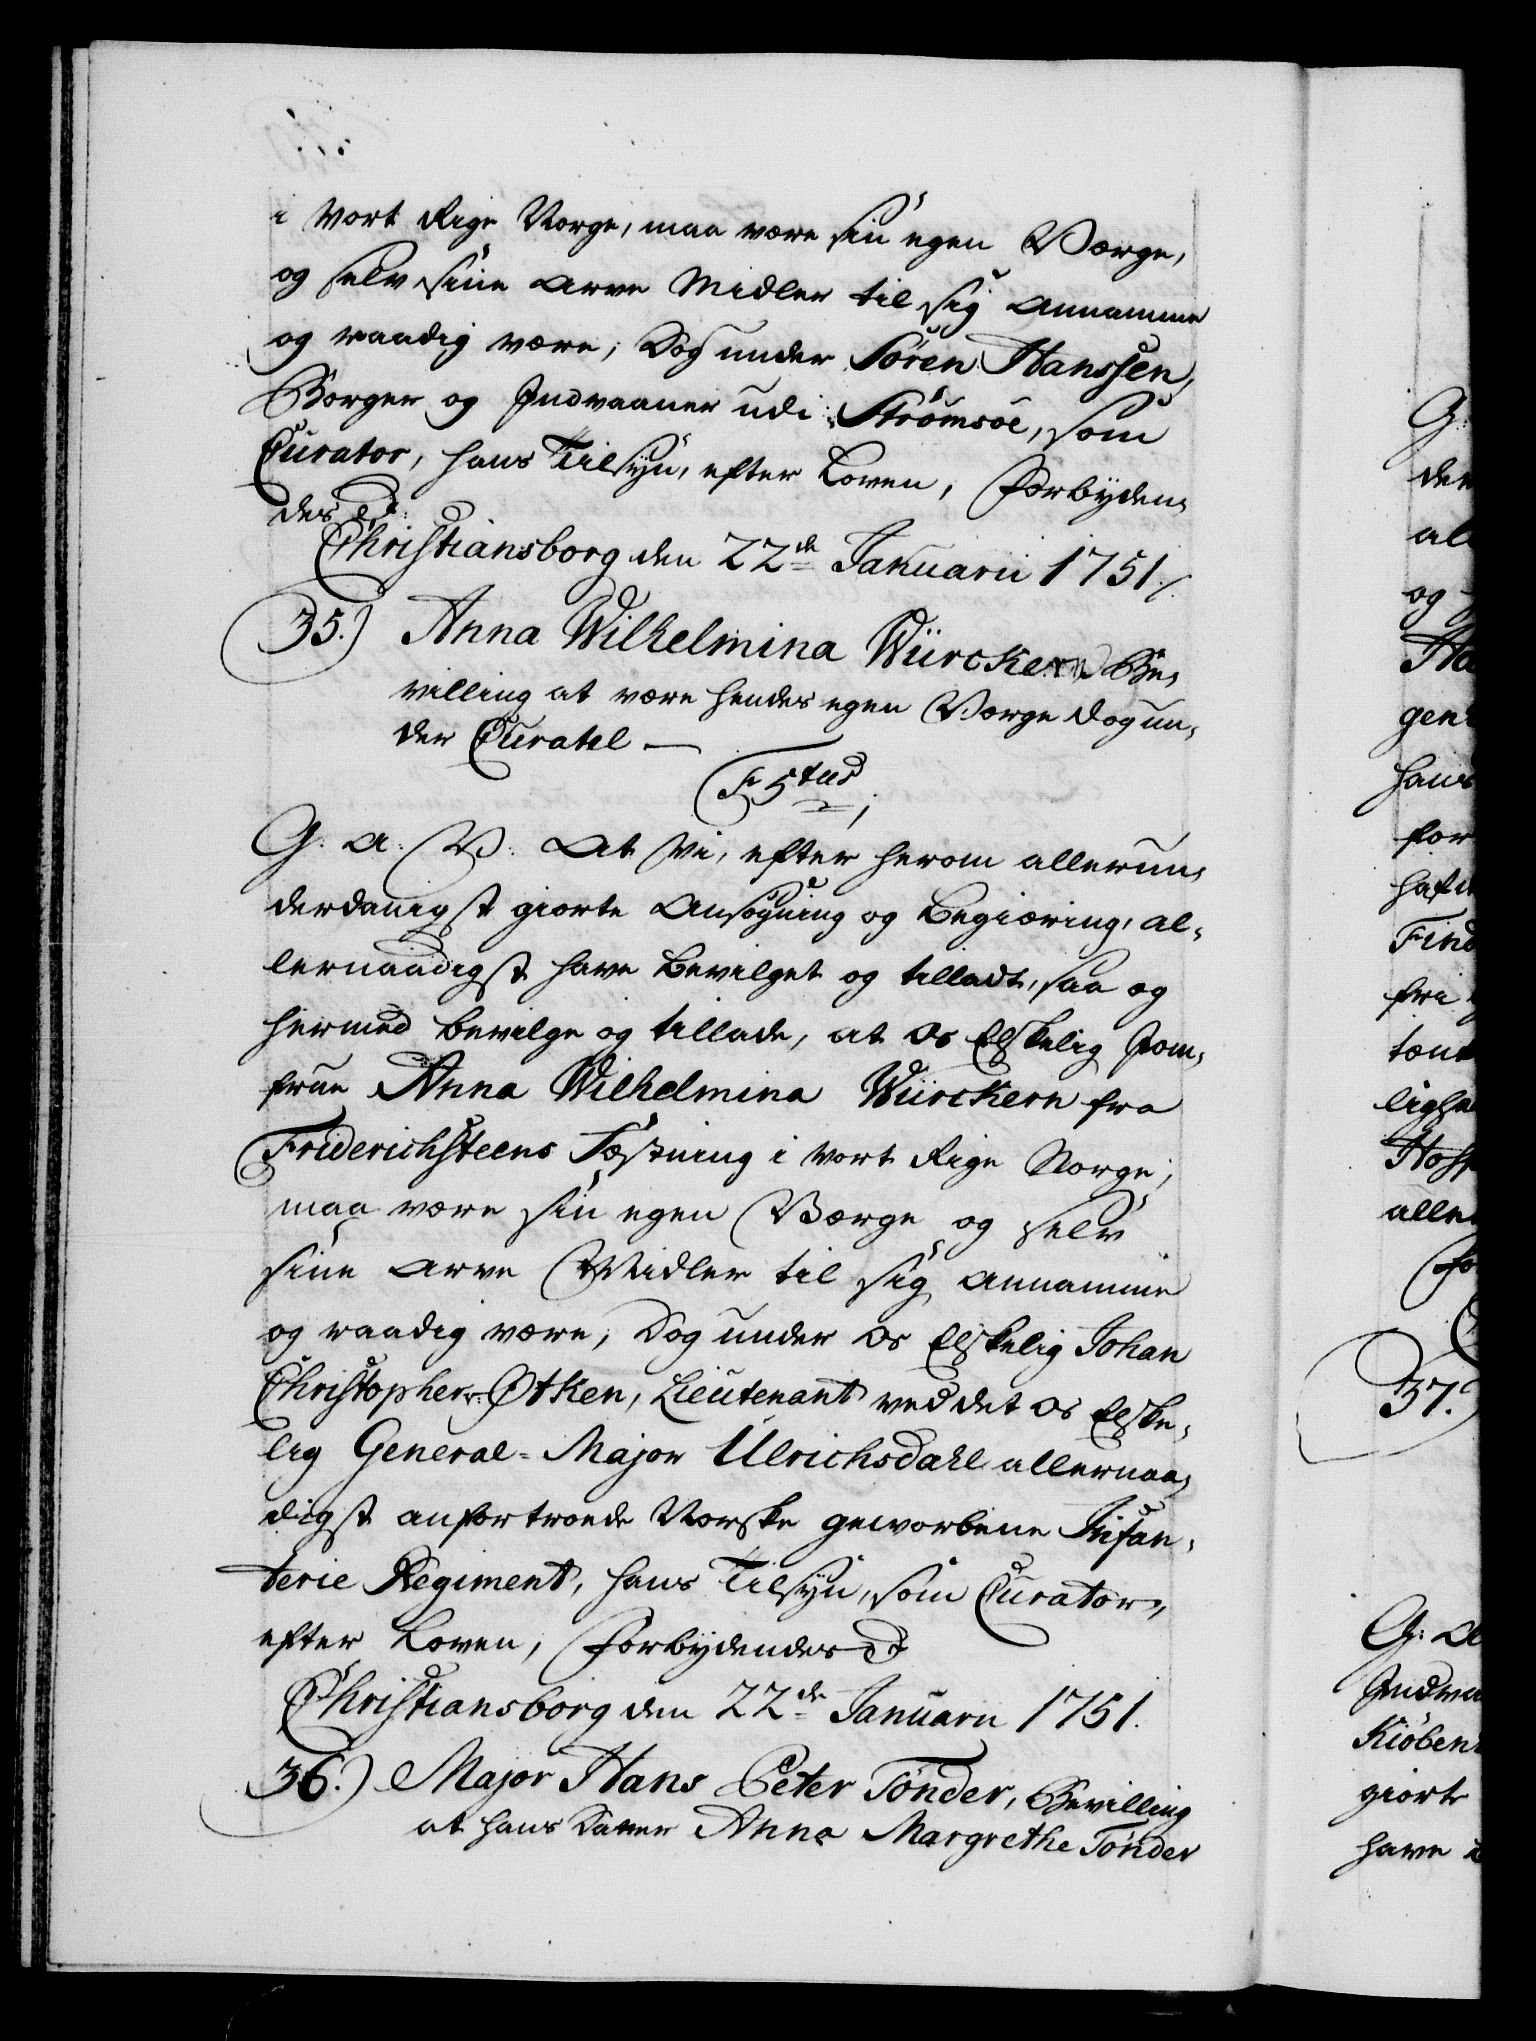 i Vort Rige Norge, maa være sin egen Værge,
og selv sine Arve Midler til sig annamme
og raadig være; Dog under Søren Hanssen,
Borger og Indvaaner udi Strømsøe, som
Curator, hans Tilsyn, efter Loven, Forbyden,
des &c:
Christiansborg den 22de Januarii 1751./.
35.) Anna Wilhelmina Würckern Be,
villing at være hendes egen Værge dog un,
der Curatel —
F 5tus
G. A. V. At Vi, efter herom allerun,
derdanigst giorte Ansøgning og Begiæring, al,
lernaadigst have bevilget og tilladt, saa og
hermed bevilge og tillade, at Os Elskelig Jom,
frue Anna Wilhelmina Würckern fra
Friderichsteens Fæstning i Vort Rige Norge;
maa være sin egen Værge og selv
sine Arve Midler til sig annamme
og raadig være; Dog under Os Elskelig Johan
Christopher Øtken, Lieutenant ved det Os Elske,
lig General-Major Ulrichsdahl allernaa,
digst anfortroede Norske geworbene Infan,
terie Regiment, hans Tilsyn, som Curator,
efter Loven, Forbydendes &c
Christiansborg den 22de Januarii 1751.
36.) Major Hans Peter Tønder, Bevilling
at hans Datter Anna Margrethe Tønder
G:
den
all
og
Ha
gen
hans
for
hafd
Find
fri
tænk
lighe
Hosp
alle
Fo
37.)
G: A
Indva
Kiøben
giort
have